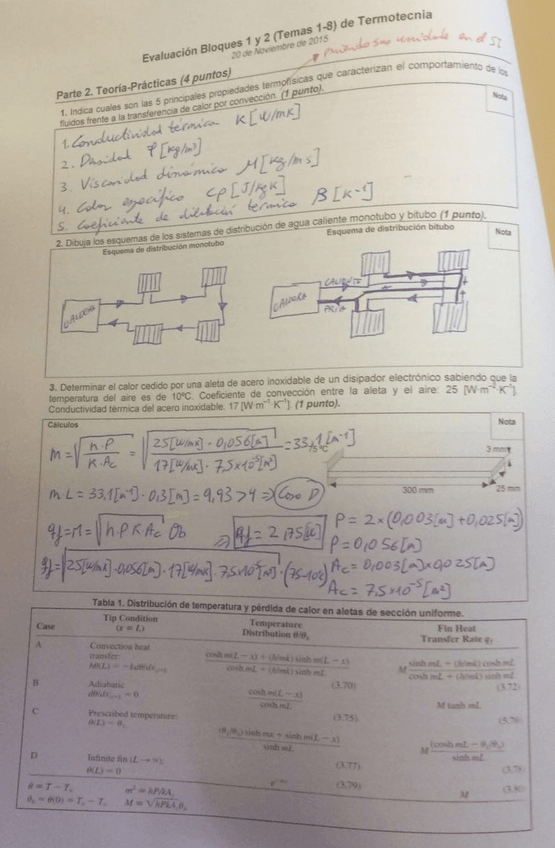 Evaluación Bloques 1 y 2 (Temas 1-8) de Termotecnia
20 de Noviembre de 2015
poniendo sus unidades en el SI
Parte 2. Teoría-Prácticas (4 puntos)
1. Indica cuales son las 5 principales propiedades termofísicas que caracterizan el comportamiento de los
fluidos frente a la transferencia de calor por convección. (1 punto).
Nota
1. Conductividad térmica K [W/mK]
2. Densidad ρ [kg/m³]
3. Viscosidad dinámica M [kg/m·s]
4. Calor específico Cp [J/kgK]
5. Coeficiente de dilatación térmico β [K⁻¹]
2. Dibuja los esquemas de los sistemas de distribución de agua caliente monotubo y bitubo (1 punto).
Esquema de distribución monotubo
Esquema de distribución bitubo
Nota
CALDERA
CALDERA
CALIENTE
FRÍA
3. Determinar el calor cedido por una aleta de acero inoxidable de un disipador electrónico sabiendo que la
temperatura del aire es de 10ºC. Coeficiente de convección entre la aleta y el aire: 25 [W·m⁻²·K⁻¹].
Conductividad térmica del acero inoxidable: 17 [W·m⁻¹·K⁻¹]. (1 punto).
Cálculos
Nota
m = √(h·P / K·Ac) = √(25[W/mK]·0,056[m] / 17[W/mK]·7,5x10⁻⁵[m²]) = 33,1[m⁻¹]
75ºC
3 mm
300 mm
25 mm
m·L = 33,1[m⁻¹]·0,3[m] = 9,93 > 4 ⇒ Caso D
qf = M = √(h P K Ac) θb ⇒ qf = 2,75[W]
P = 2x(0,003[m]+0,025[m])
P = 0,056[m]
qf = √(25[W/mK]·0,056[m]·17[W/mK]·7,5x10⁻⁵[m²])·(75-10)
Ac = 0,003[m]x0,025[m]
Ac = 7,5x10⁻⁵[m²]
Tabla 1. Distribución de temperatura y pérdida de calor en aletas de sección uniforme.
Case
Tip Condition
(x = L)
Temperature
Distribution θ/θb
Fin Heat
Transfer Rate qf
A
Convection heat
transfer:
hθ(L) = −kdθ/dx|x=L
cosh m(L − x) + (h/mk) sinh m(L − x)
cosh mL + (h/mk) sinh mL
(3.70)
M (sinh mL + (h/mk) cosh mL
cosh mL + (h/mk) sinh mL)
(3.72)
B
Adiabatic
dθ/dx|x=L = 0
cosh m(L − x)
cosh mL
(3.75)
M tanh mL
(3.76)
C
Prescribed temperature:
θ(L) = θL
(θL/θb) sinh mx + sinh m(L − x)
sinh mL
(3.77)
M (cosh mL − θL/θb)
sinh mL
(3.78)
D
Infinite fin (L → ∞):
θ(L) = 0
e⁻ᵐˣ
(3.79)
M
(3.80)
θ = T − T∞
m² = hP/kAc
θb = θ(0) = Tb − T∞
M = √hPkAc θb